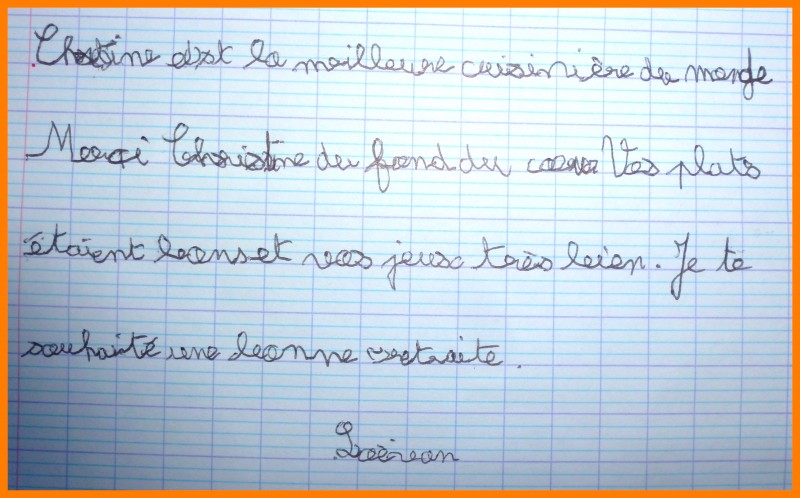 Christine est la meilleure cuisinière du monde
Merci Christine du fond du coeur Vos plats
étaient bons et vos jeux très bien. Je te
souhaite une bonne retraite.